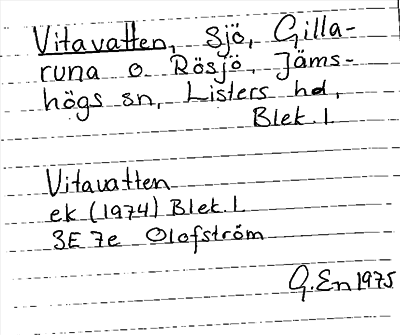 Vitavatten, sjö, Gilla-
runa o Rösjö, Jäms-
högs sn, Listers hd,
Blek. l
Vitavatten
ek (1974) Blek. l.
3E 7e Olofström
G. En 1975